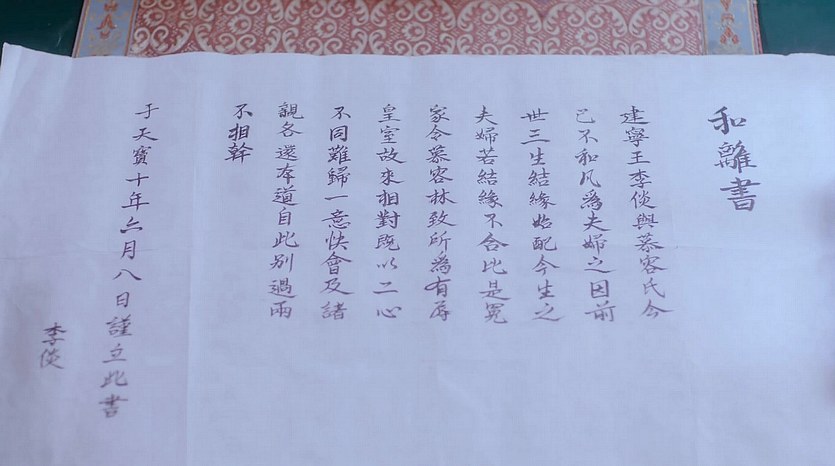 和離書
建寧王李倓與慕容氏今
已不和凡為夫婦之因前
世三生結緣始配今生之
夫婦若結緣不合比是冤
家今慕容林致所為有辱
皇室故來相對既以二心
不同難歸一意快會及諸
親各還本道自此別過兩
不相幹
于天寶十年六月八日謹立此書
李倓